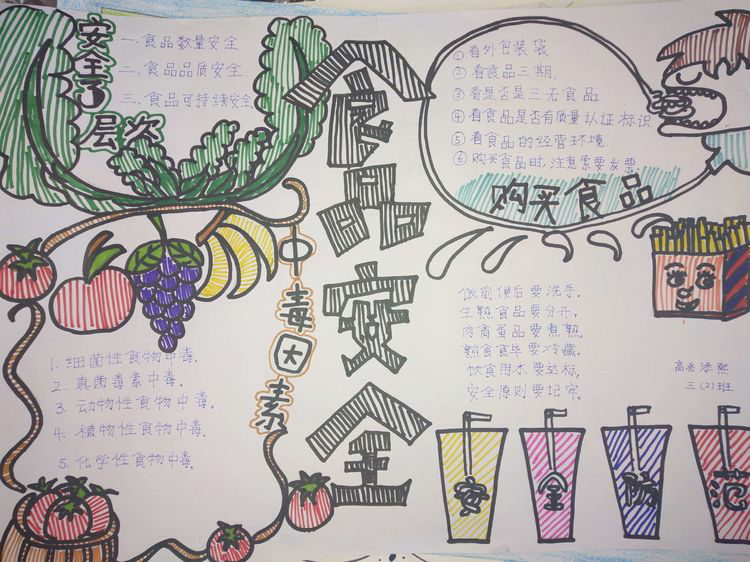 安全了
层次
一.食品数量安全
二.食品品质安全
三.食品可持续安全
食品安全
①看外包装袋
②看食品三期.
③看是否是三无食品.
④看食品是否有质量认证标识.
⑤看食品的经营环境.
⑥购买食品时.注意索要发票.
购买食品
中毒因素
1.细菌性食物中毒.
2.真菌毒素中毒.
3.动物性食物中毒。
4.植物性食物中毒.
5.化学性食物中毒.
饭前便后要洗手,
生熟食品要分开,
肉禽蛋品要煮熟,
熟食食毕要冷藏.
饮食用水要达标,
安全原则要记牢。
三(2)班
安全防范